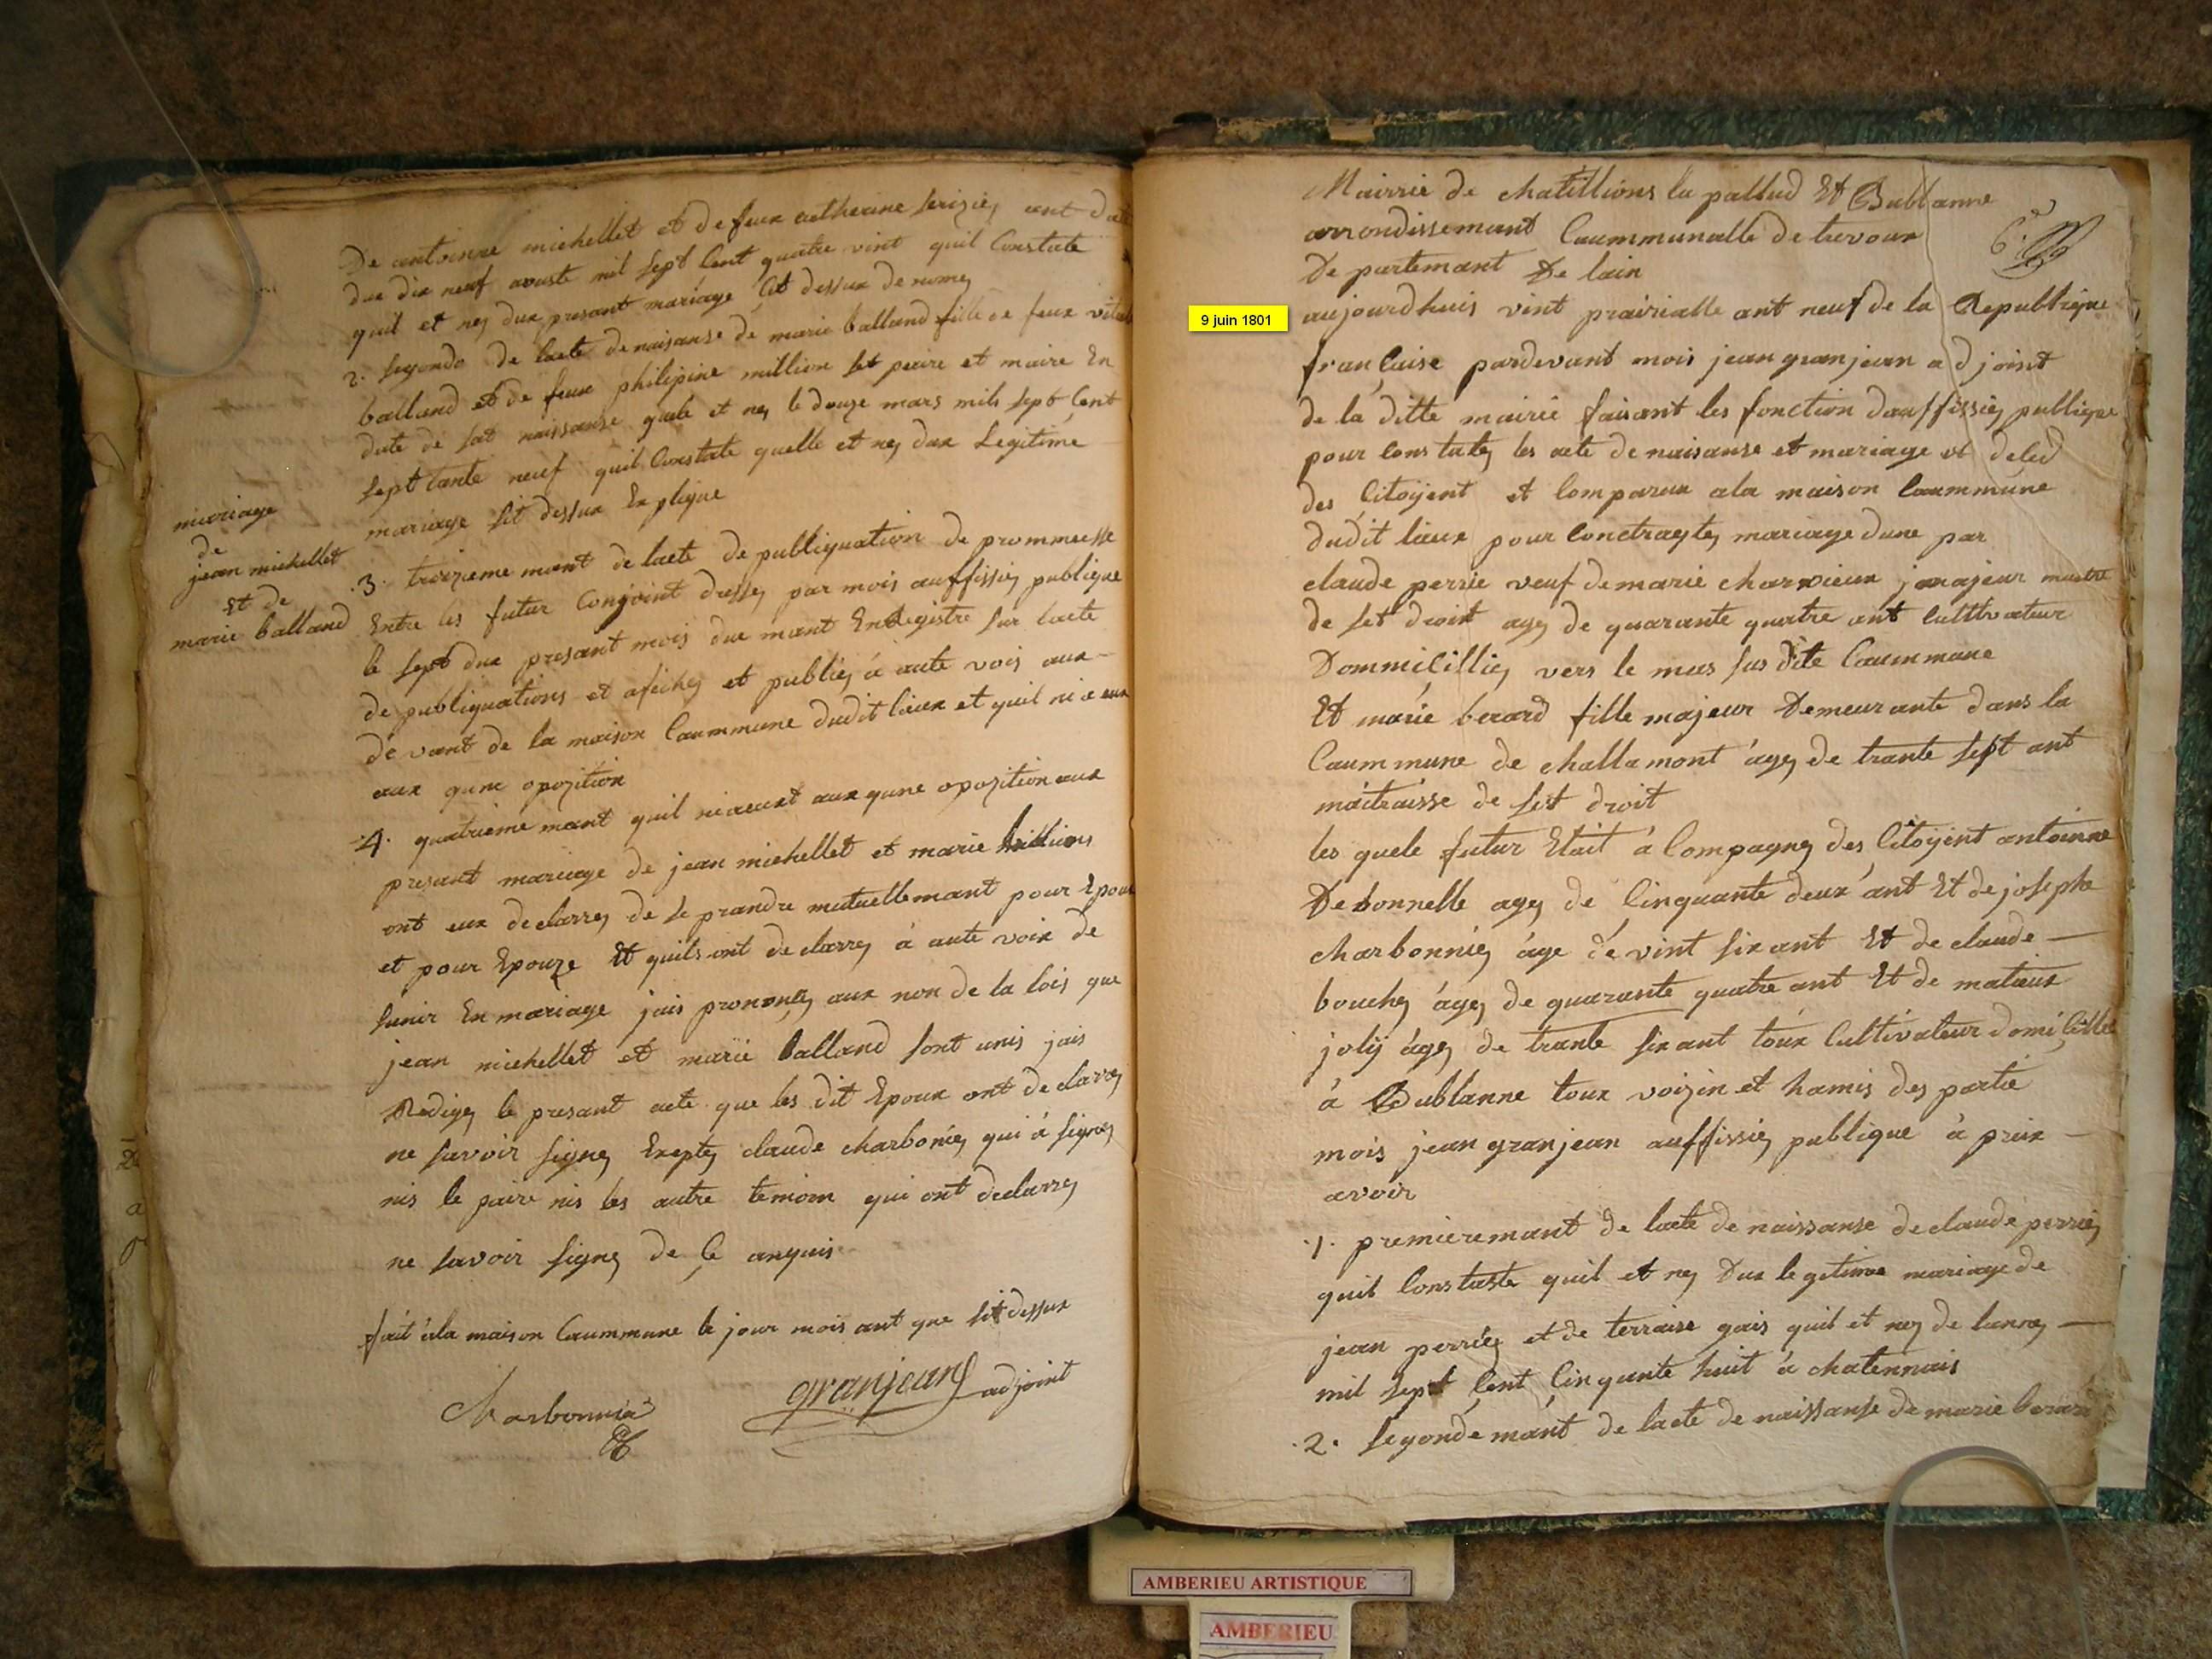 De antoinne miehellet et de feux catherine serizies ant date
dux dix neuf avuste mil sept Cent quatre vint quil Constate
quil et nez dux presant mariage Cit dessux de nomez
2. segondo de lacte de naisanse de marie balland fille de feux
balland et de feux philipine million set peire et maire En
date de sat naissanse quele et nez le douze mars mils sept Cent
sept tante neuf quil Constate quelle et nez dux Legitime
mariage sit dessux Explique
mariage
de
jean miehellet
Et de
marie balland
.3. troizieme mant de lacte de publiquation de prommesse
Entre les futur Conjoint dressez par mois auffissiez publique
le sept dux presant mois due mant EnRegistre sur lacte
de publiquations et afichez et publiez á aute vois aux
de vant de la maison Caummune dudit lieux et quil ni a eux
aux qune opozition
.4. quatrieme mant quil ni aeuxt aux qune opozition aux
presant mariage de jean miehellet et marie
ont eux declarrez de se prandre mutuellemant pour Epoux
et pour Epouze Et quils ont declarrez á aute voix de
sunir En mariage jais prononcez aux non de la lois que
jean miehellet et marie balland sont unis jais
Redigez le presant acte que les dit Epoux ont declarrez
ne savoir signez Exeptez claude charboniez qui á signez
nis le paire nis les autre temoin qui ont declarrez
ne savoir signez de Ce anquis
fait á la maison Caummune le jour mois ant que sit dessux
Charbonnié
granjean adjoint
Mairrie de chatillions la pallud Et Bublanne
arrondissemant Caummunalle de trevoux
6.e
De partemant De lain
9 juin 1801
aujourdhuis vint prairialle ant neuf de la Republique
française pardevant mois jean granjean adjoint
de la ditte mairie faisant les fonction dauffissiez publique
pour Constatez les acte de naisanse et mariage et deled
des Citoÿent et Comparux a la maison Caummune
dudit lieux pour Conctragtez mariage dune par
claude perrie veuf de marie charvieux majeur maitre
de set droit agez de quarante quatre ant Cultivateur
Dommicilliez vers le mas sus dite Caummune
Et marie berard fille majeur Demeurante dans la
Caummune de challamont ágez de trante sept ant
maitraisse de set droit
les quele futur Etait á Compagnez des Citoÿent antoinne
Debonnelle agez de Cinquante deux ant Et de joseph
charbonniez áge de vint six ant Et de claude
bouchez ágez de quarante quatre ant Et de matieux
jolÿ ágez de trante six ant toux Cultivateur domiCillie
á Bublanne toux voizin et hamis des partie
mois jean granjean auffissiez publique á prix
avoir
.1. premieremant de lacte de naissanse de claude perriez
quil Constaste quil et nez Dux legitime mariage de
jean perriez et de terraise gais quil et nez de lannez
mil sept Cent Cinquante huit á chatennais
.2. segonde mant de lacte de naissanse de marie berard
AMBERIEU ARTISTIQUE
AMBERIEU